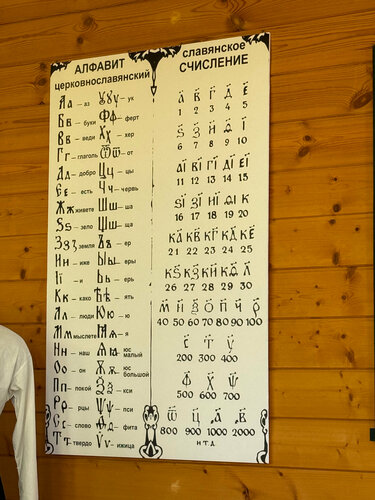 АЛФАВИТ
церковнославянский
Аа – аз Ѹѹ – ук
Бв – буки Фф – ферт
Вв – веди Хх – хер
Гг – глаголь Ѿѿ – от
Дд – добро Цц – цы
Єє – есть Чч – червь
Жж живете Шш – ша
Ѕѕ – зело Щщ – ща
Зз земля Ъъ – ер
Ии – иже Ыы – еры
Її – и Ьь – ерь
Кк – како Ѣѣ – ять
Лл – люди Юю – ю
Мм мыслете Ꙗꙗ – я
Нн – наш Ѧѧ – юс малый
Оо – он Ѫѫ – юс большой
Пп – покой Ѯѯ – кси
Рр – рцы Ѱѱ – пси
Сс – слово Ѳѳ – фита
Тт – твердо Ѵѵ – ижица
славянское
СЧИСЛЕНИЕ
а҃ в҃ г҃ д҃ є҃
1 2 3 4 5
ѕ҃ з҃ и҃ ѳ҃ і҃
6 7 8 9 10
аі҃ ві҃ гі҃ ді҃ єі҃
11 12 13 14 15
ѕі҃ зі҃ иі҃ ѳі҃ к҃
16 17 18 19 20
ка҃ кв҃ кг҃ кд҃ кє҃
21 22 23 24 25
кѕ҃ кз҃ ки҃ кѳ҃ л҃
26 27 28 29 30
м҃ н҃ ѯ҃ о҃ п҃ ч҃ р҃
40 50 60 70 80 90 100
с҃ т҃ у҃
200 300 400
ф҃ х҃ ѱ҃
500 600 700
ѿ҃ ц҃ ҂а҃ ҂в҃
800 900 1000 2000
и т.д.